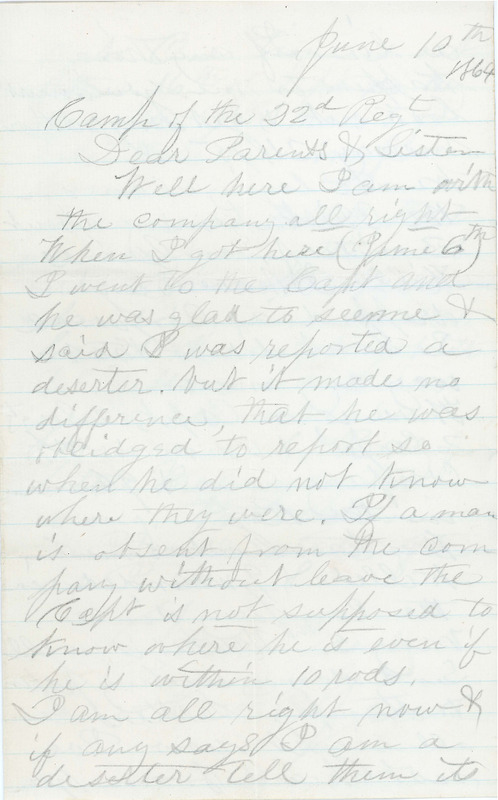 June 10th
1864
Camp of the 32d Regt
Dear Parents & Sister
Well here I am with
the company all right
When I got here (June 6th)
I went to the Capt and
he was glad to seeme &
said I was reported a
deserter. but it made no
difference, that he was
oblidged to report so
when he did not know
where they were. If a man
is absent from the com
pany without leave the
Capt is not supposed to
know where he is even if
he is within 10 rods.
I am all right now &
if any says I am a
deserter tell them its